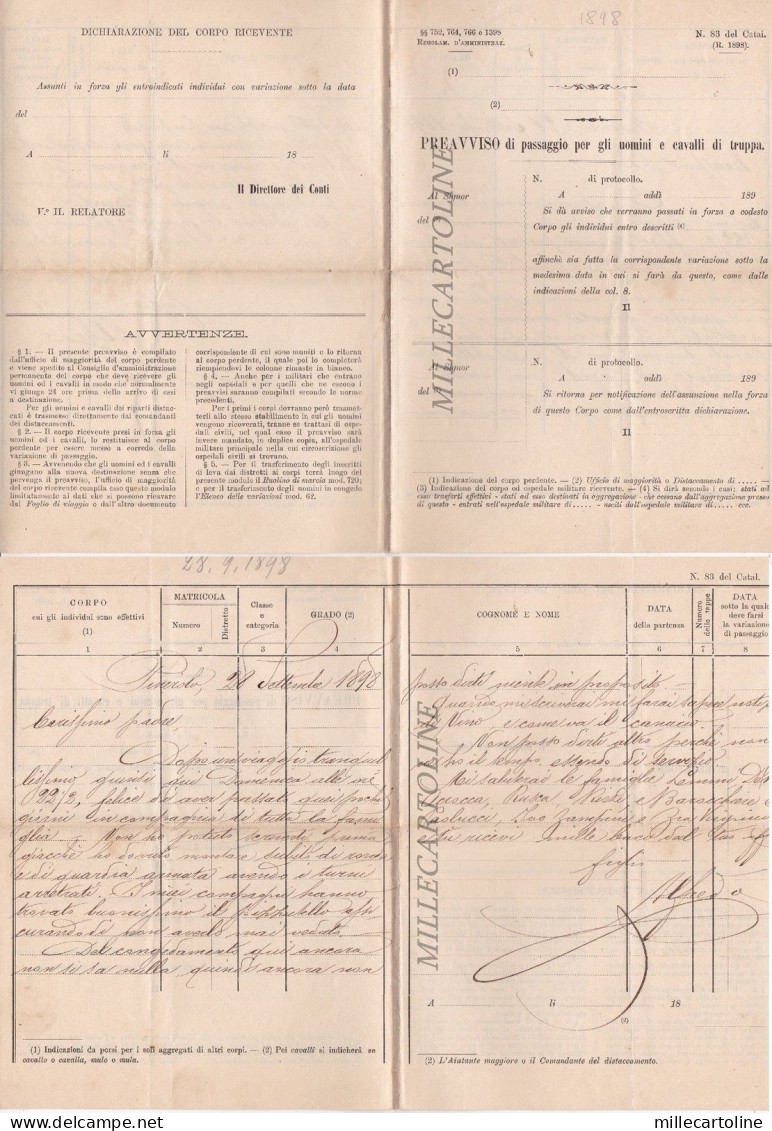 DICHIARAZIONE DEL CORPO RICEVENTE
Assunti in forza gli entroindicati individui con variazione sotto la data
del
A li 18
Il Direttore dei Conti
V.° IL RELATORE
AVVERTENZE.
§ 1. — Il presente preavviso è compilato
dall'ufficio di maggiorità del corpo perdente
e viene spedito al Consiglio d'amministrazione
permanente del corpo che deve ricevere gli
uomini od i cavalli in modo che normalmente
vi giunga 24 ore prima dello arrivo di essi
a destinazione.
Per gli uomini e cavalli dei riparti distac-
cati è trasmesso direttamente dai comandanti
dei distaccamenti.
§ 2. — Il corpo ricevente presi in forza gli
uomini od i cavalli, lo restituisce al corpo
perdente per essere messo a corredo della
variazione di passaggio.
§ 3. — Avvenendo che gli uomini od i cavalli
giungano alla nuova destinazione senza che
pervenga il preavviso, l'ufficio di maggiorità
del corpo ricevente compila esso questo modulo
limitatamente ai dati che si possono ricavare
dal Foglio di viaggio o dall'altro documento
corrispondente di cui sono muniti e lo ritorna
al corpo perdente, il quale poi lo completerà
riempiendovi le colonne rimaste in bianco.
§ 4. — Anche per i militari che entrano
negli ospedali e per quelli che ne escono i
preavvisi saranno compilati secondo le norme
precedenti.
Per i primi i corpi dovranno però trasmet-
terli allo stesso ospedale in cui gli uomini
vengono ricoverati, tranne se trattasi di ospe-
dali civili, nel qual caso il preavviso sarà
invece mandato, in duplice copia, all'ospedale
militare principale nella cui circoscrizione gli
ospedali civili si trovano.
§ 5. — Per il trasferimento degli inscritti
di leva dai distretti ai corpi terrà luogo del
presente modulo il Ruolino di marcia mod. 729;
e per il trasferimento degli uomini in congedo
l'Elenco delle variazioni mod. 62.
1898
§§ 752, 764, 766 e 1398
REGOLAM. D'AMMINISTRAZ.
N. 83 del Catal.
(R. 1898).
(1)
(2)
PREAVVISO di passaggio per gli uomini e cavalli di truppa.
N. di protocollo.
A addì 189
Al Signor
del
Si dà avviso che verranno passati in forza a codesto
Corpo gli individui entro descritti (4)
affinchè sia fatta la corrispondente variazione sotto la
medesima data in cui si farà da questo, come dalle
indicazioni della col. 8.
Il
N. di protocollo.
A addì 189
Al Signor
del
Si ritorna per notificazione dell'assunzione nella forza
di questo Corpo come dall'entroscritta dichiarazione.
Il
(1) Indicazione del corpo perdente. — (2) Ufficio di maggiorità o Distaccamento di ..... —
(3) Indicazione del corpo od ospedale militare ricevente. — (4) Si dirà secondo i casi; stati ad
esso trasferti effettivi - stati ad esso destinati in aggregazione - che cessano dall'aggregazione presso
di questo - entrati nell'ospedale militare di ..... - usciti dall'ospedale militare di ..... ecc.
MILLECARTOLINE
28. 9. 1898
N. 83 del Catal.
CORPO
cui gli individui sono effettivi
(1)
MATRICOLA
Numero
Distretto
Classe
e
categoria
GRADO (2)
COGNOME E NOME
DATA
della partenza
Numero
delle tappe
DATA
sotto la quale
deve farsi
la variazione
di passaggio
1 2 3 4 5 6 7 8
Pinerolo, 28 Settembre 1898
Carissimo padre,
Dopo un viaggio tranquil
lissimo giunsi qui Domenica alle ore
22/2, felice di aver passati quei pochi
giorni in compagnia di tutta la fami
glia. Non ho potuto scriverti prima
giacchè ho dovuto montare subito di ronda
e di guardia armata avendo i turni
arretrati. I miei compagni hanno
trovato buonissimo il
curando di non averlo mai veduto.
Del congedamento qui ancora
non si sa nulla, quindi ancora non
posso dirti niente in proposito.
Quando mi scriverai mi farai sapere
del Vino e come va il
Non posso dirti altro perchè non
ho il tempo, essendo di servizio.
Mi saluterai le famiglie
Rusca, e
e
tu ricevi mille baci dal tuo aff
figlio
Alfredo
MILLECARTOLINE
A li 18
(2)
(1) Indicazioni da porsi per i soli aggregati di altri corpi. — (2) Pei cavalli si indicherà se
cavallo o cavalla, mulo o mula.
(2) L'Aiutante maggiore o il Comandante del distaccamento.
delcampe.net
millecartoline